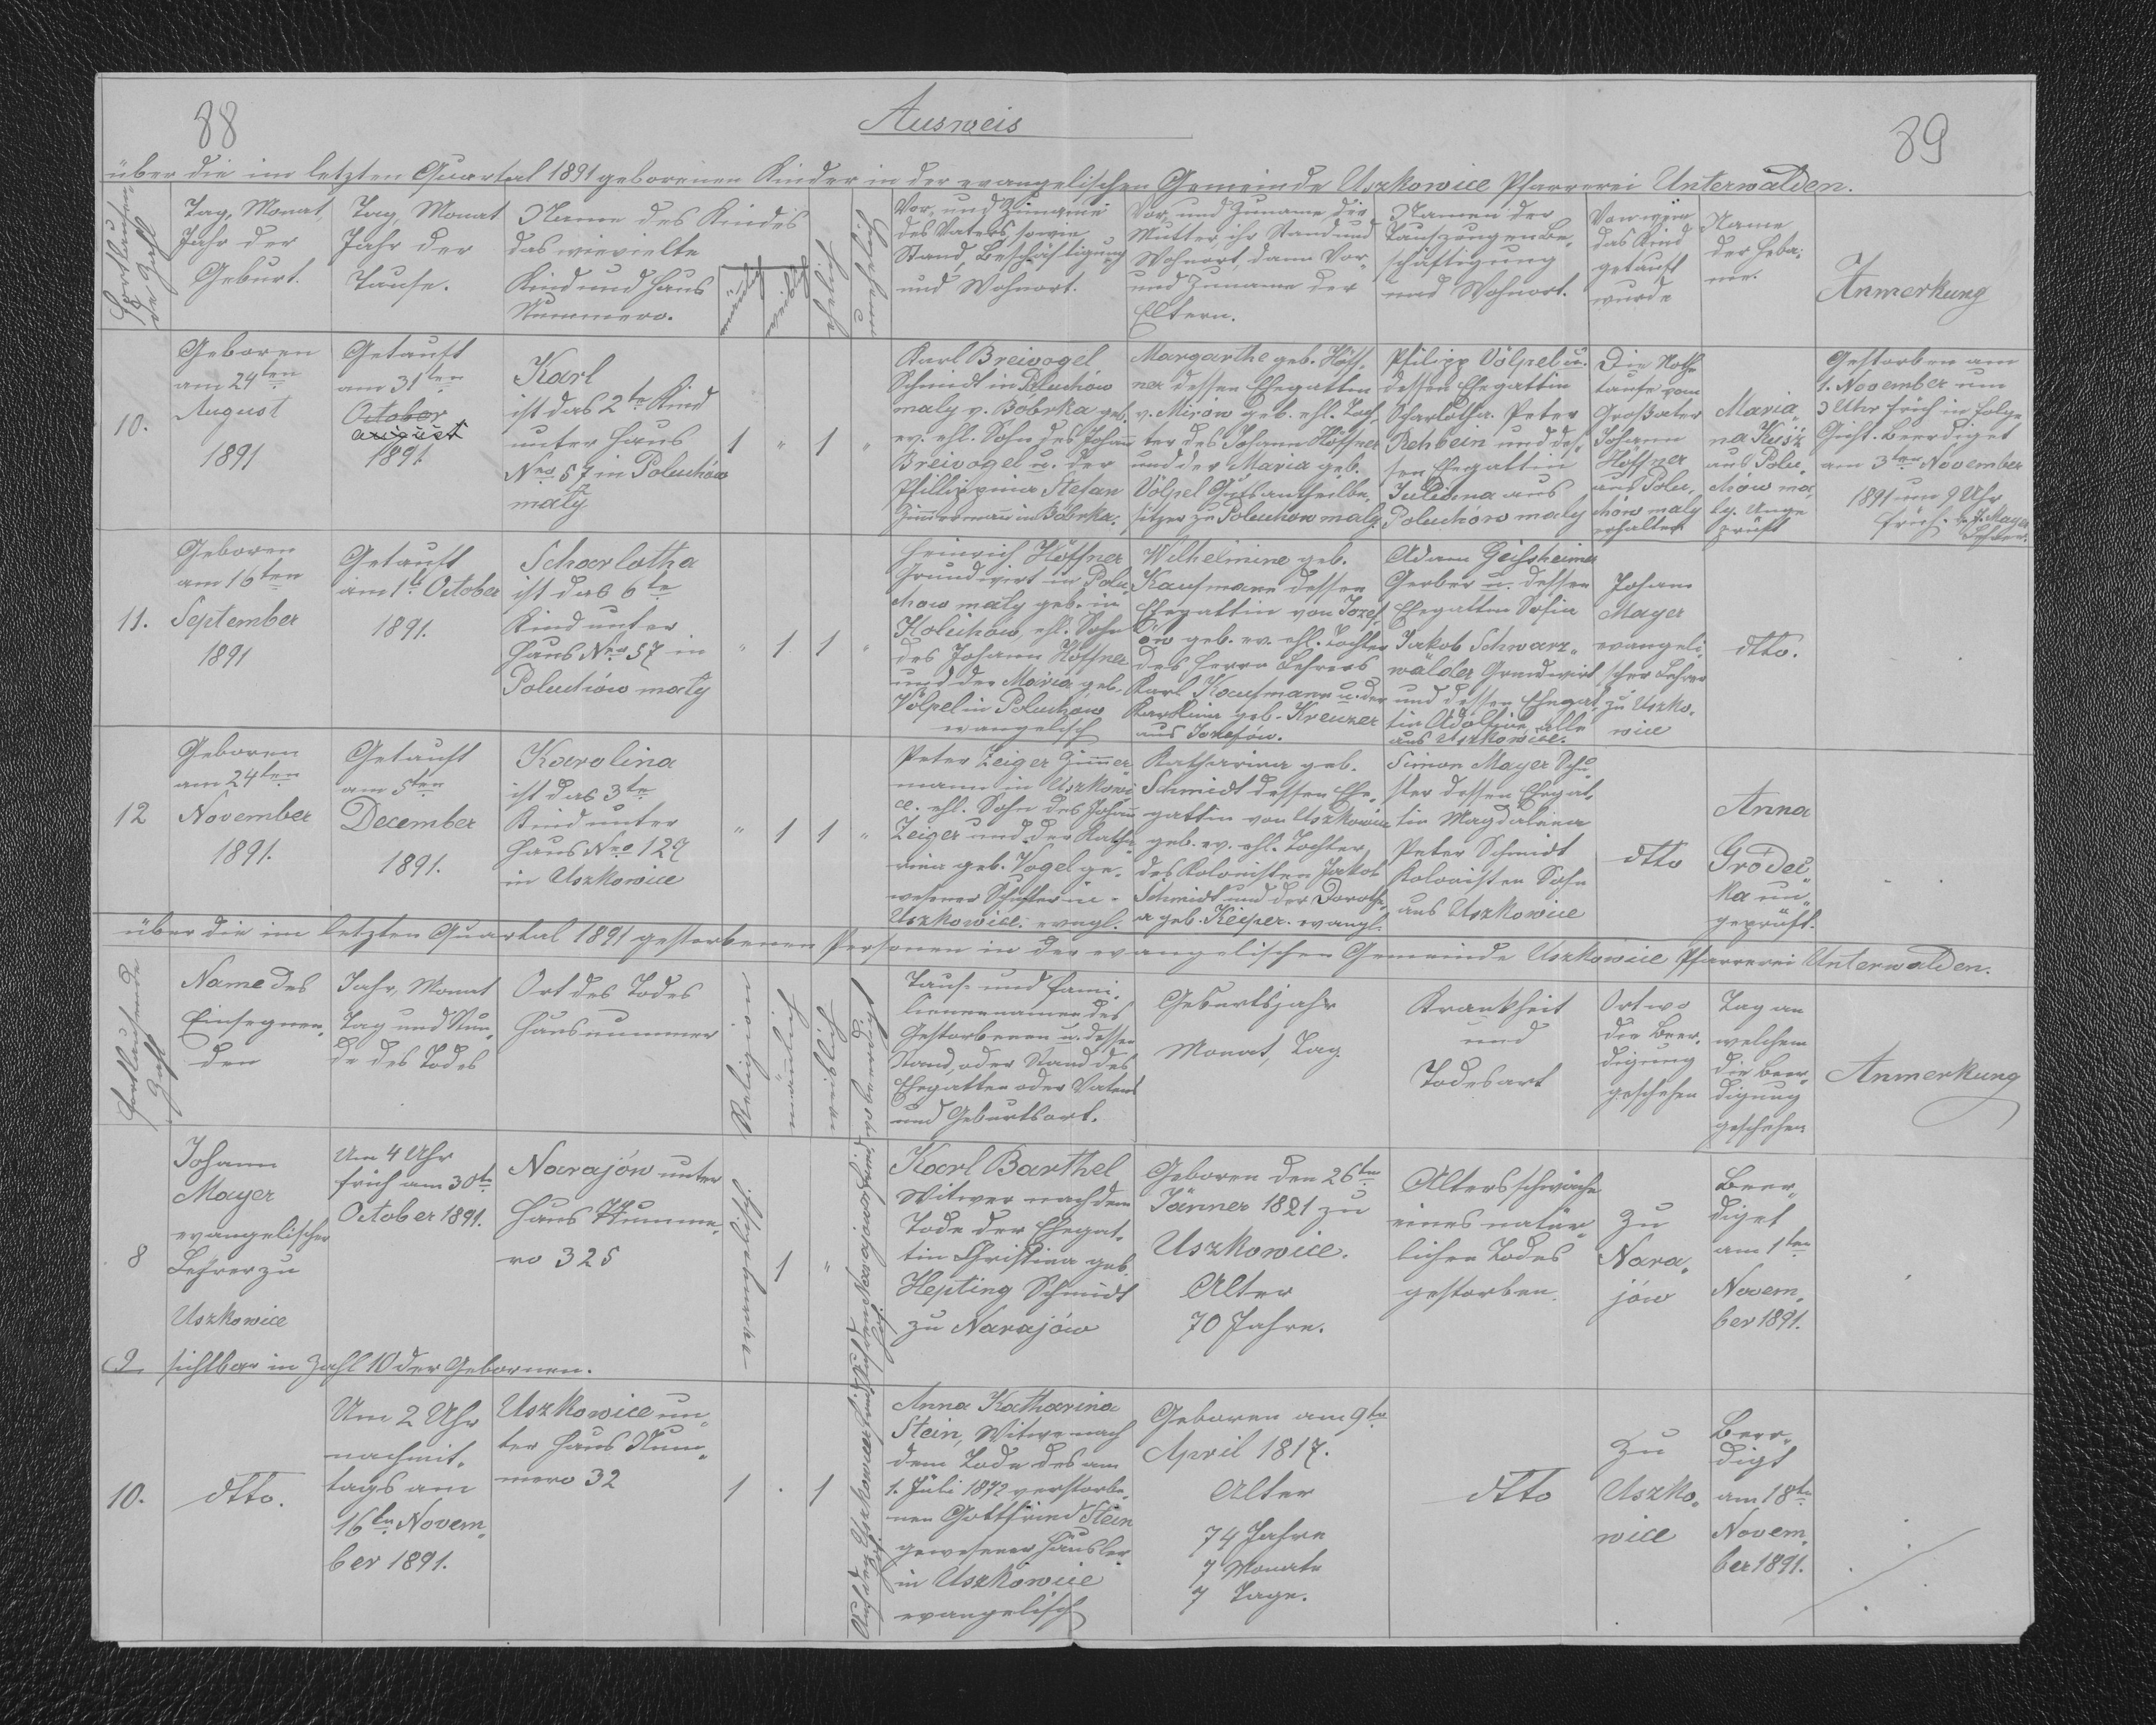 88
Ausweis
89
über die im letzten Quartal 1891 geborenen Kinder in der evangelischen Gemeinde Uszkowice Pfarrerei Unterwalden.
Fortlaufen-
de Zahl
Tag, Monat,
Jahr der
Geburt.
Tag, Monat
Jahr der
Taufe.
Name des Kindes
das wievielte
Kind und Haus
Nummero.
männlich
weiblich
ehelich
unehelich
Vor- und Zuname
des Vaters, sowie
Stand, Beschäftigung
und Wohnort.
Vor- und Zuname der
Mutter, ihr Stand und
Wohnort, dann Vor-
und Zuname der
Eltern.
Namen der
Taufzeugen Be-
schäftigung
und Wohnort.
Von wem
das Kind
getauft
wurde
Name
der Heba-
me.
Anmerkung
10.
Geboren
am 24ten
August
1891
Getauft
am 31ten
October
august
1891.
Karl
ist das 2te Kind
unter Haus
Nro 57 in Poluchów
mały
1 " 1 "
Karl Breivogel
Schmidt in Poluchów
mały v. Bóbrka geb.
ev. ehl. Sohn des Johan
Breivogel u. der
Phillippina Stefan
Zimmermann in Bóbrka.
Margarthe geb. Höff-
ner dessen Ehegattin
v. Mirów geb. ehl. Toch-
ter des Johann Höffner
und der Maria geb.
Völpel Gutsantheilbe-
sitzer zu Poluchow mały.
Philipp Völpel u.
dessen Ehegattin
Scharlotha. Peter
Rehbein und des-
sen Ehegattin
Juliana aus
Poluchów mały
Die Noth-
taufe vom
Großvater
Johann
Höffner
aus Polu-
chów mały
erhalten
Maria-
na Kuśz
aus Polu-
chów ma-
ły. Unge-
prüft
Gestorben am
1. November um
3 Uhr früh in Folge
Gicht. Beerdiget
am 3ten November
1891 um 9 Uhr
früh. v. J. Mayer
Lehrer.
11.
Geboren
am 16ten
September
1891
Getauft
am 1t. October
1891.
Scharlotha
ist das 6te
Kind unter
Haus Nro 57 in
Poluchów mały
" 1 1 "
Heinrich Höffner
Grundwirt in Polu-
chow mały geb. in
Holuchow, ehl. Sohn
des Johann Höffner
und der Maria geb.
Völpel in Poluchow
evangelisch
Wilhelmine geb.
Kaufmann dessen
Ehegattin von Jozef-
ów geb. ev. ehl. Tochter
des Herrn Lehrers
Karl Kaufmann u. der
Karolina geb. Kreuzer
aus Jozefów.
Adam Geissheimer
Gerber u. dessen
Ehegattin Sofia
Jakob Schwarz-
wälder Grundwirt
und dessen Ehegat-
tin Adolfine, alle
aus Uszkowice.
Johann
Mayer
evangeli-
scher Lehrer
zu Uszko-
wice
dtto.
12
Geboren
am 24ten
November
1891.
Getauft
am 5ten
December
1891.
Karolina
ist das 3te
Kind unter
Haus Nro 127
in Uszkowice
" 1 1 "
Peter Zeiger Zimmer-
mann in Uszkowi-
ce. ehl. Sohn des Johan
Zeiger und der Katha-
rina geb. Vogel ge-
wesener Schuster in
Uszkowice. evngl.
Katharina geb.
Schmidt dessen Ehe-
gattin von Uszkowice
geb. ev. ehl. Tochter
des Kolonisten Jakob
Schmidt und der Dorothe-
a geb. Keiper. evangl.
Simon Mayer Schu-
ster dessen Ehegat-
tin Magdalena
Peter Schmidt
Kolonisten Sohn
aus Uszkowice
dtto
Anna
Gródec-
ka un-
geprüft.
über die im letzten Quartal 1891 gestorbenen Personen in der evangelischen Gemeinde Uszkowice Pfarrerei Unterwalden.
Fortlaufende
Zahl
Name des
Einsegnen-
den
Jahr, Monat
Tag und Stun-
de des Todes
Ort des Todes
Hausnummer
Religion
männlich
weiblich
wo beerdigt
Tauf- und Fami-
liennamen des
Gestorbenen u. dessen
Stand, oder Stand des
Ehegatten oder Vaters
und Geburtsort.
Geburtsjahr
Monat, Tag.
Krankheit
und
Todesart
Ort wo
die Beer-
digung
geschehen
Tag an
welchem
die Beer-
digung
geschehen
Anmerkung
8
Johann
Mayer
evangelischer
Lehrer zu
Uszkowice
Um 4 Uhr
früh am 30te
October 1891.
Narajów unter
Haus Numme-
ro 325
evangelisch.
1 "
Auf dem Narajower Friedhof
Karl Barthel
Witwer nach dem
Tode der Ehegat-
tin Christina geb.
Hepting Schmidt
zu Narajów
Geboren den 26te
Jänner 1821 zu
Uszkowice.
Alter
70 Jahre.
Altersschwäche
eines natür-
lichen Todes
gestorben.
Zu
Nara-
jów
Beer-
diget
am 1ten
Novem-
ber 1891.
9 sichtbar in Zahl 10 der Gebornen.
10.
dtto.
Um 2 Uhr
nachmit-
tags am
16te Novem-
ber 1891.
Uszkowice un-
ter Haus Num-
mero 32
1 . 1
Auf dem Uszkowicer Friedhof
Anna Katharina
Stein, Witwe nach
dem Tode des am
1. Juli 1872 verstorbe-
nen Gottfried Stein
gewesener Häusler
in Uszkowice
evangelisch
Geboren am 9te
April 1817.
Alter
74 Jahre
7 Monate
7 Tage.
dtto
Zu
Uszko-
wice
Beer-
digt
am 18te
Novem-
ber 1891.